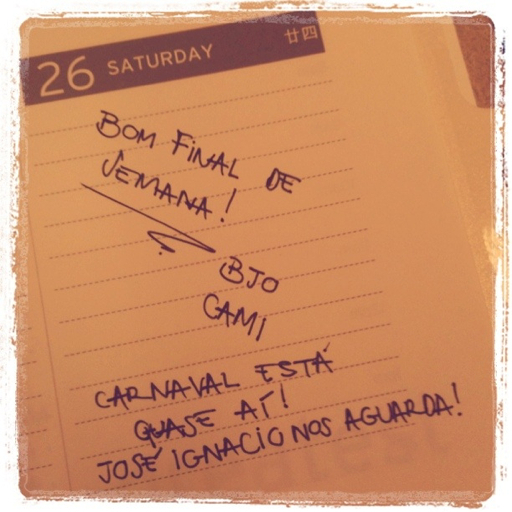 26 SATURDAY 廿四
BOM FINAL DE
SEMANA!
BJO
CAMI
CARNAVAL ESTÁ
QUASE AÍ!
JOSÉ IGNACIO NOS AGUARDA!